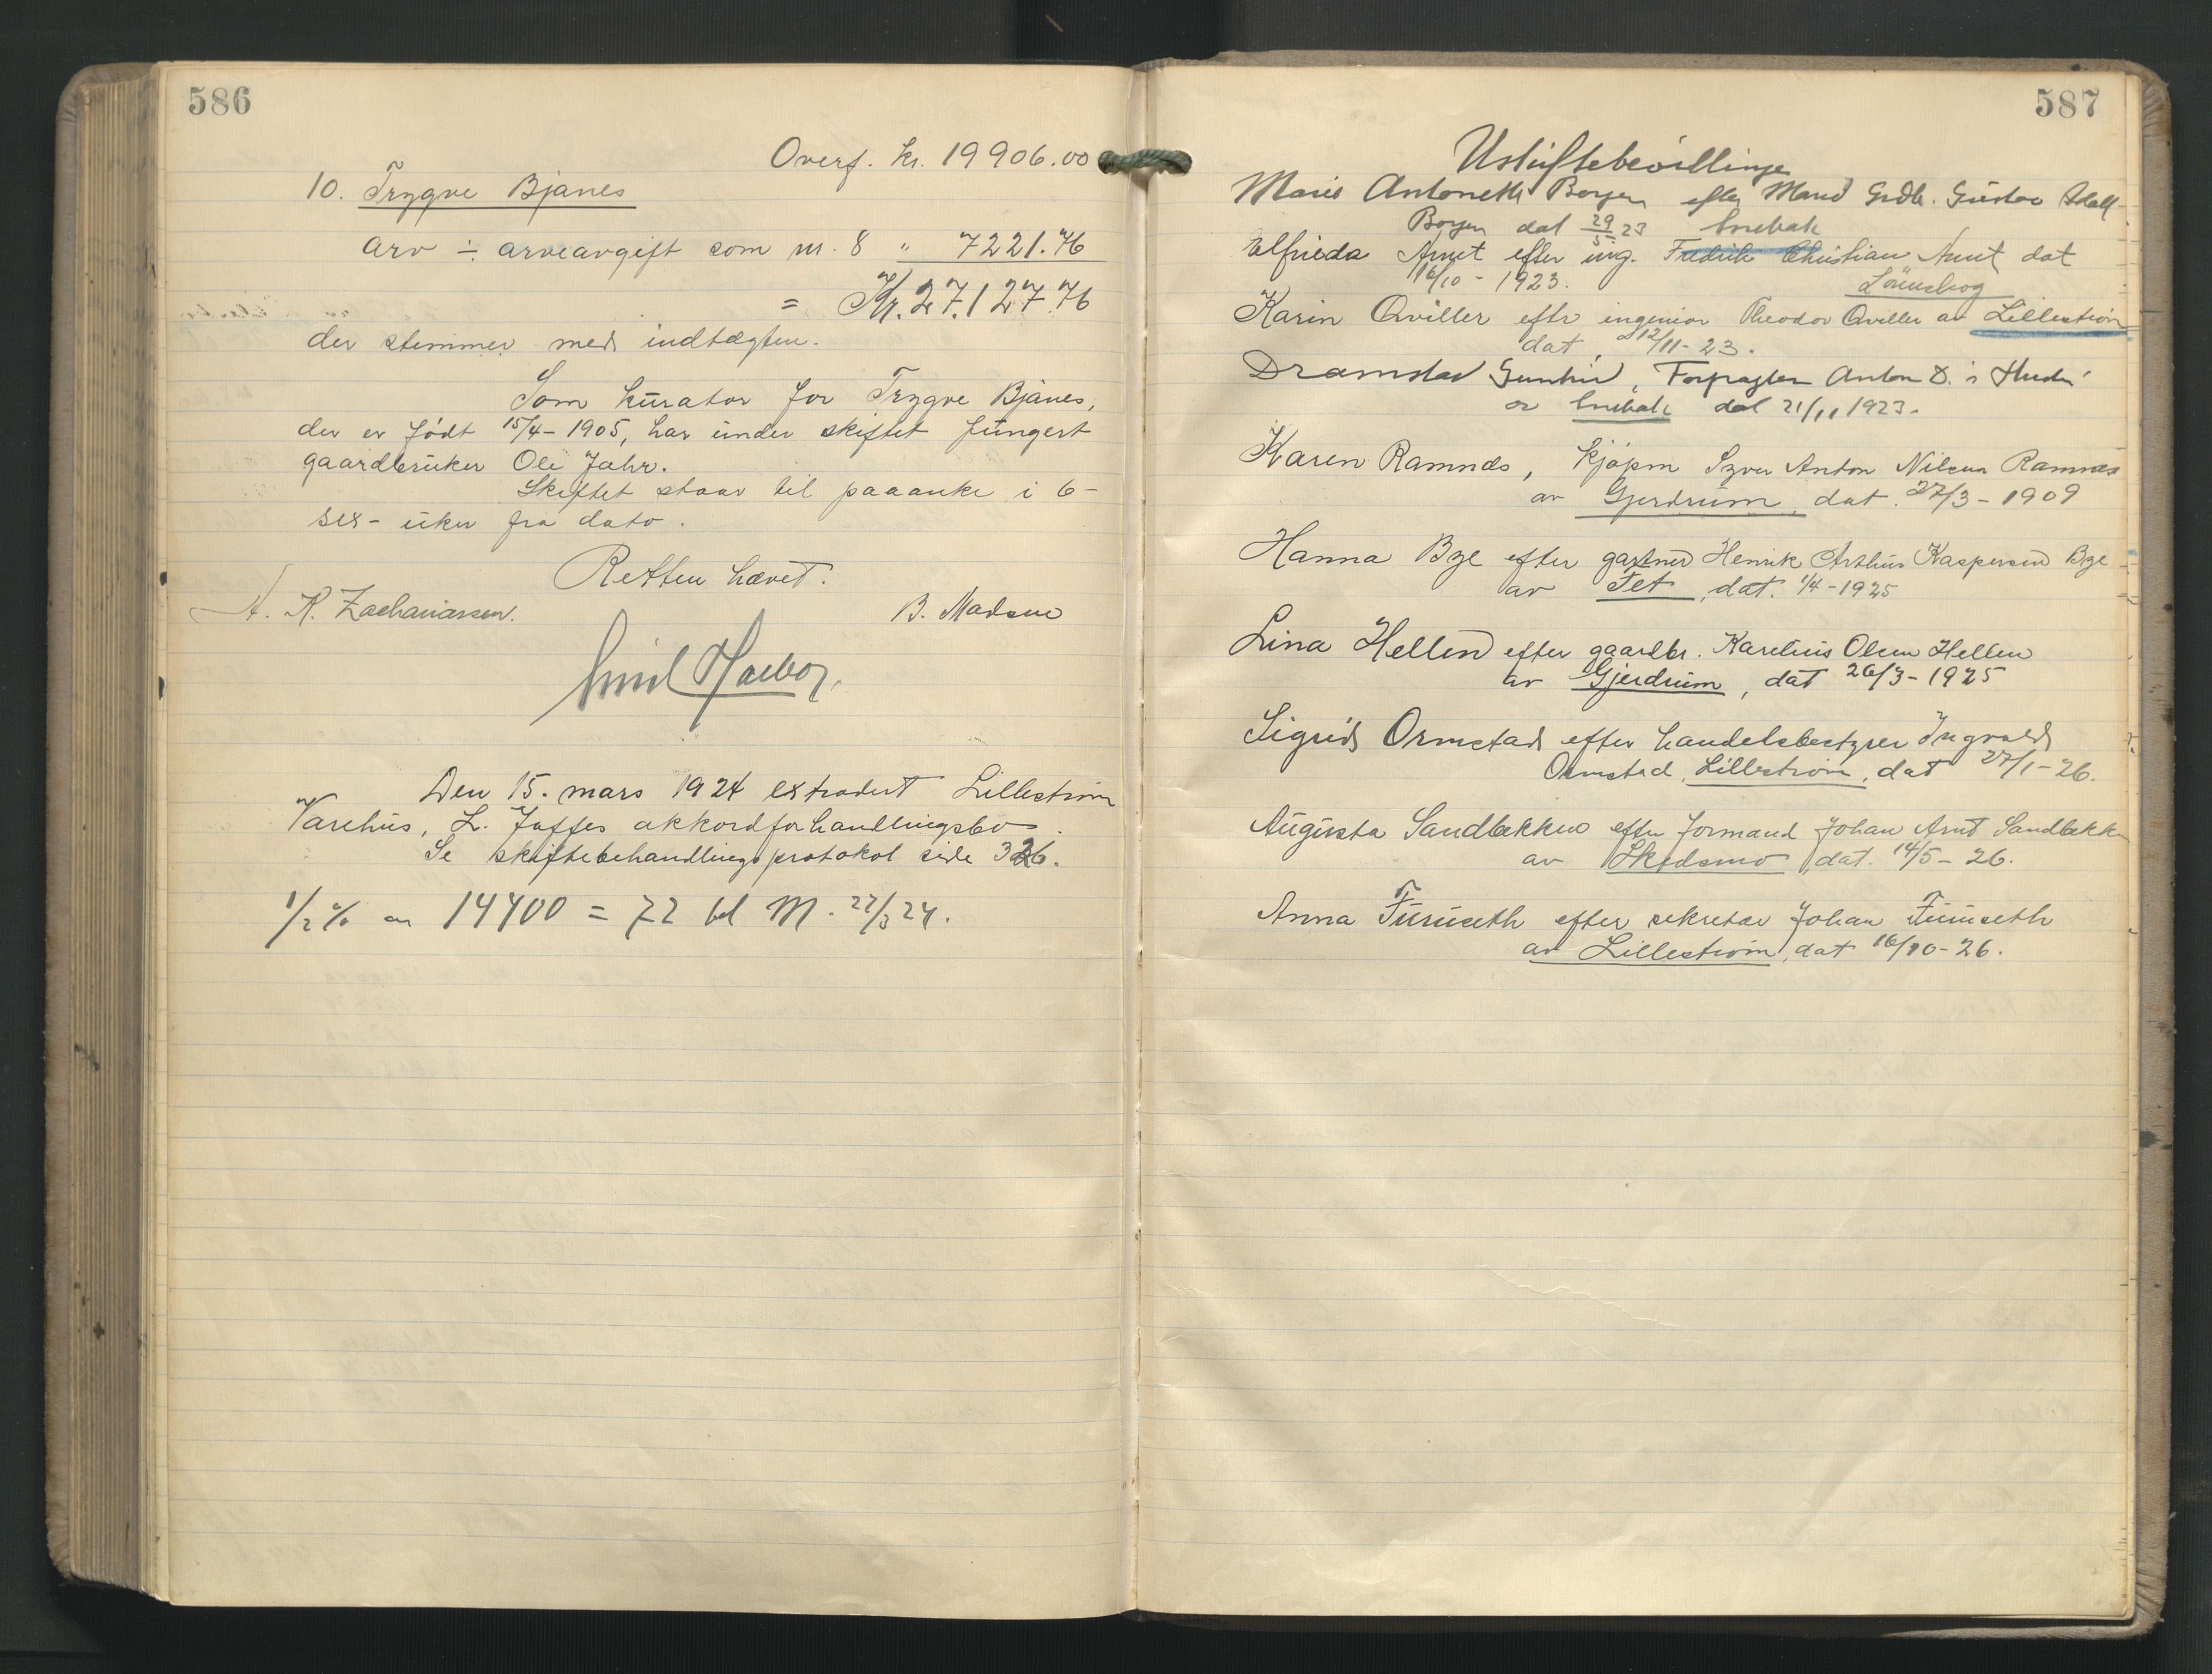 586
Overf. kr. 19906.00
10. Trygve Bjanes
arv ÷ arveavgift som nr. 8 " 7221.76
= Kr. 27.127.76
der stemmer med indtægten.
Som kurator for Trygve Bjanes,
der er født 15/4-1905, har under skiftet fungert
gaardbruker Ole Jahr.
Skiftet staar til paaanke i 6-
sex- uker fra dato.
Retten hævet.
A. K. Zachariassen.
B. Madsen
Emil
Den 15. mars 1924 extradert Lillestrøm
Varehus, L. Jaffes akkordforhandlingsbo.
Se skiftebehandlingsprotokol side 326.
1/2 % av 14400 = 72 bet M. 27/3 24.
587
Uskiftebevillinger
Marie Antonette Borgen efter Mand Grdbr. Gustav Adolf
Borgen dat 29/5 23 Enebak
Elfrieda Arnet efter ing. Fredrik Christian Arnet dat
16/10 - 1923. Lörenskog
Karin Qviller eftr ingeniør Theodor Qviller av Lillestrøm
dat 12/11-23.
Dramstad Gunhild, Forpagter Anton D. i
av Enebak dat 21/11 1923.
Karen Ramnæs, kjøpm Syver Anton Nilsen Ramnæs
av Gjerdrum, dat. 27/3-1909
Hanna Bye efter gartner Henrik Arthur Kaspersen Bye
av Fet, dat. 1/4-1925
Lina Hellen efter gaardbr. Karelius Olsen Hellen
av Gjerdrum, dat 26/3-1925
Sigrid Ormstad efter handelsbestyrer Ingvald
Ormstad, Lillestrøm, dat 27/1-26.
Augusta Sandbækken efter formand Johan Arnt Sandbækken
av Skedsmo, dat. 14/5-26.
Anna Furuseth efter sekretær Johan Furuseth
av Lillestrøm, dat 16/10-26.